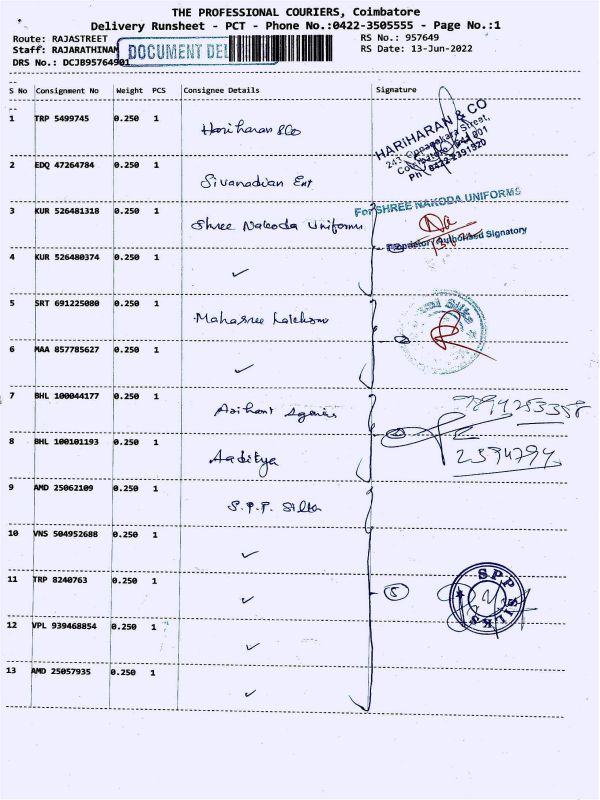 THE PROFESSIONAL COURIERS, Coimbatore
Delivery Runsheet - PCT - Phone No.:0422-3505555 - Page No.:1
Route: RAJASTREET RS No.: 957649
Staff: RAJARATHINAM DOCUMENT DEL RS Date: 13-Jun-2022
DRS No.: DCJB95764901
S No Consignment No Weight PCS Consignee Details Signature
1 TRP 5499745 0.250 1 Hariharan &Co
HARIHARAN & CO
2 EDQ 47264784 0.250 1 Sivanadian Ent
3 KUR 526481318 0.250 1 Shree Nakoda Uniforms
For SHREE NAKODA UNIFORMS
Authorised Signatory
4 KUR 526480374 0.250 1 ✓
5 SRT 691225080 0.250 1 Mahasree
6 MAA 857785627 0.250 1 ✓
7 BHL 100044177 0.250 1 Arihant Agencies
8 BHL 100101193 0.250 1 Aaditya
2394794
9 AMD 25062109 0.250 1 S.P.P. Silks
10 VNS 504952688 0.250 1 ✓
11 TRP 8240763 0.250 1 ✓ 5
SPP SILKS
12 VPL 939468854 0.250 1 ✓
13 AMD 25057935 0.250 1 ✓